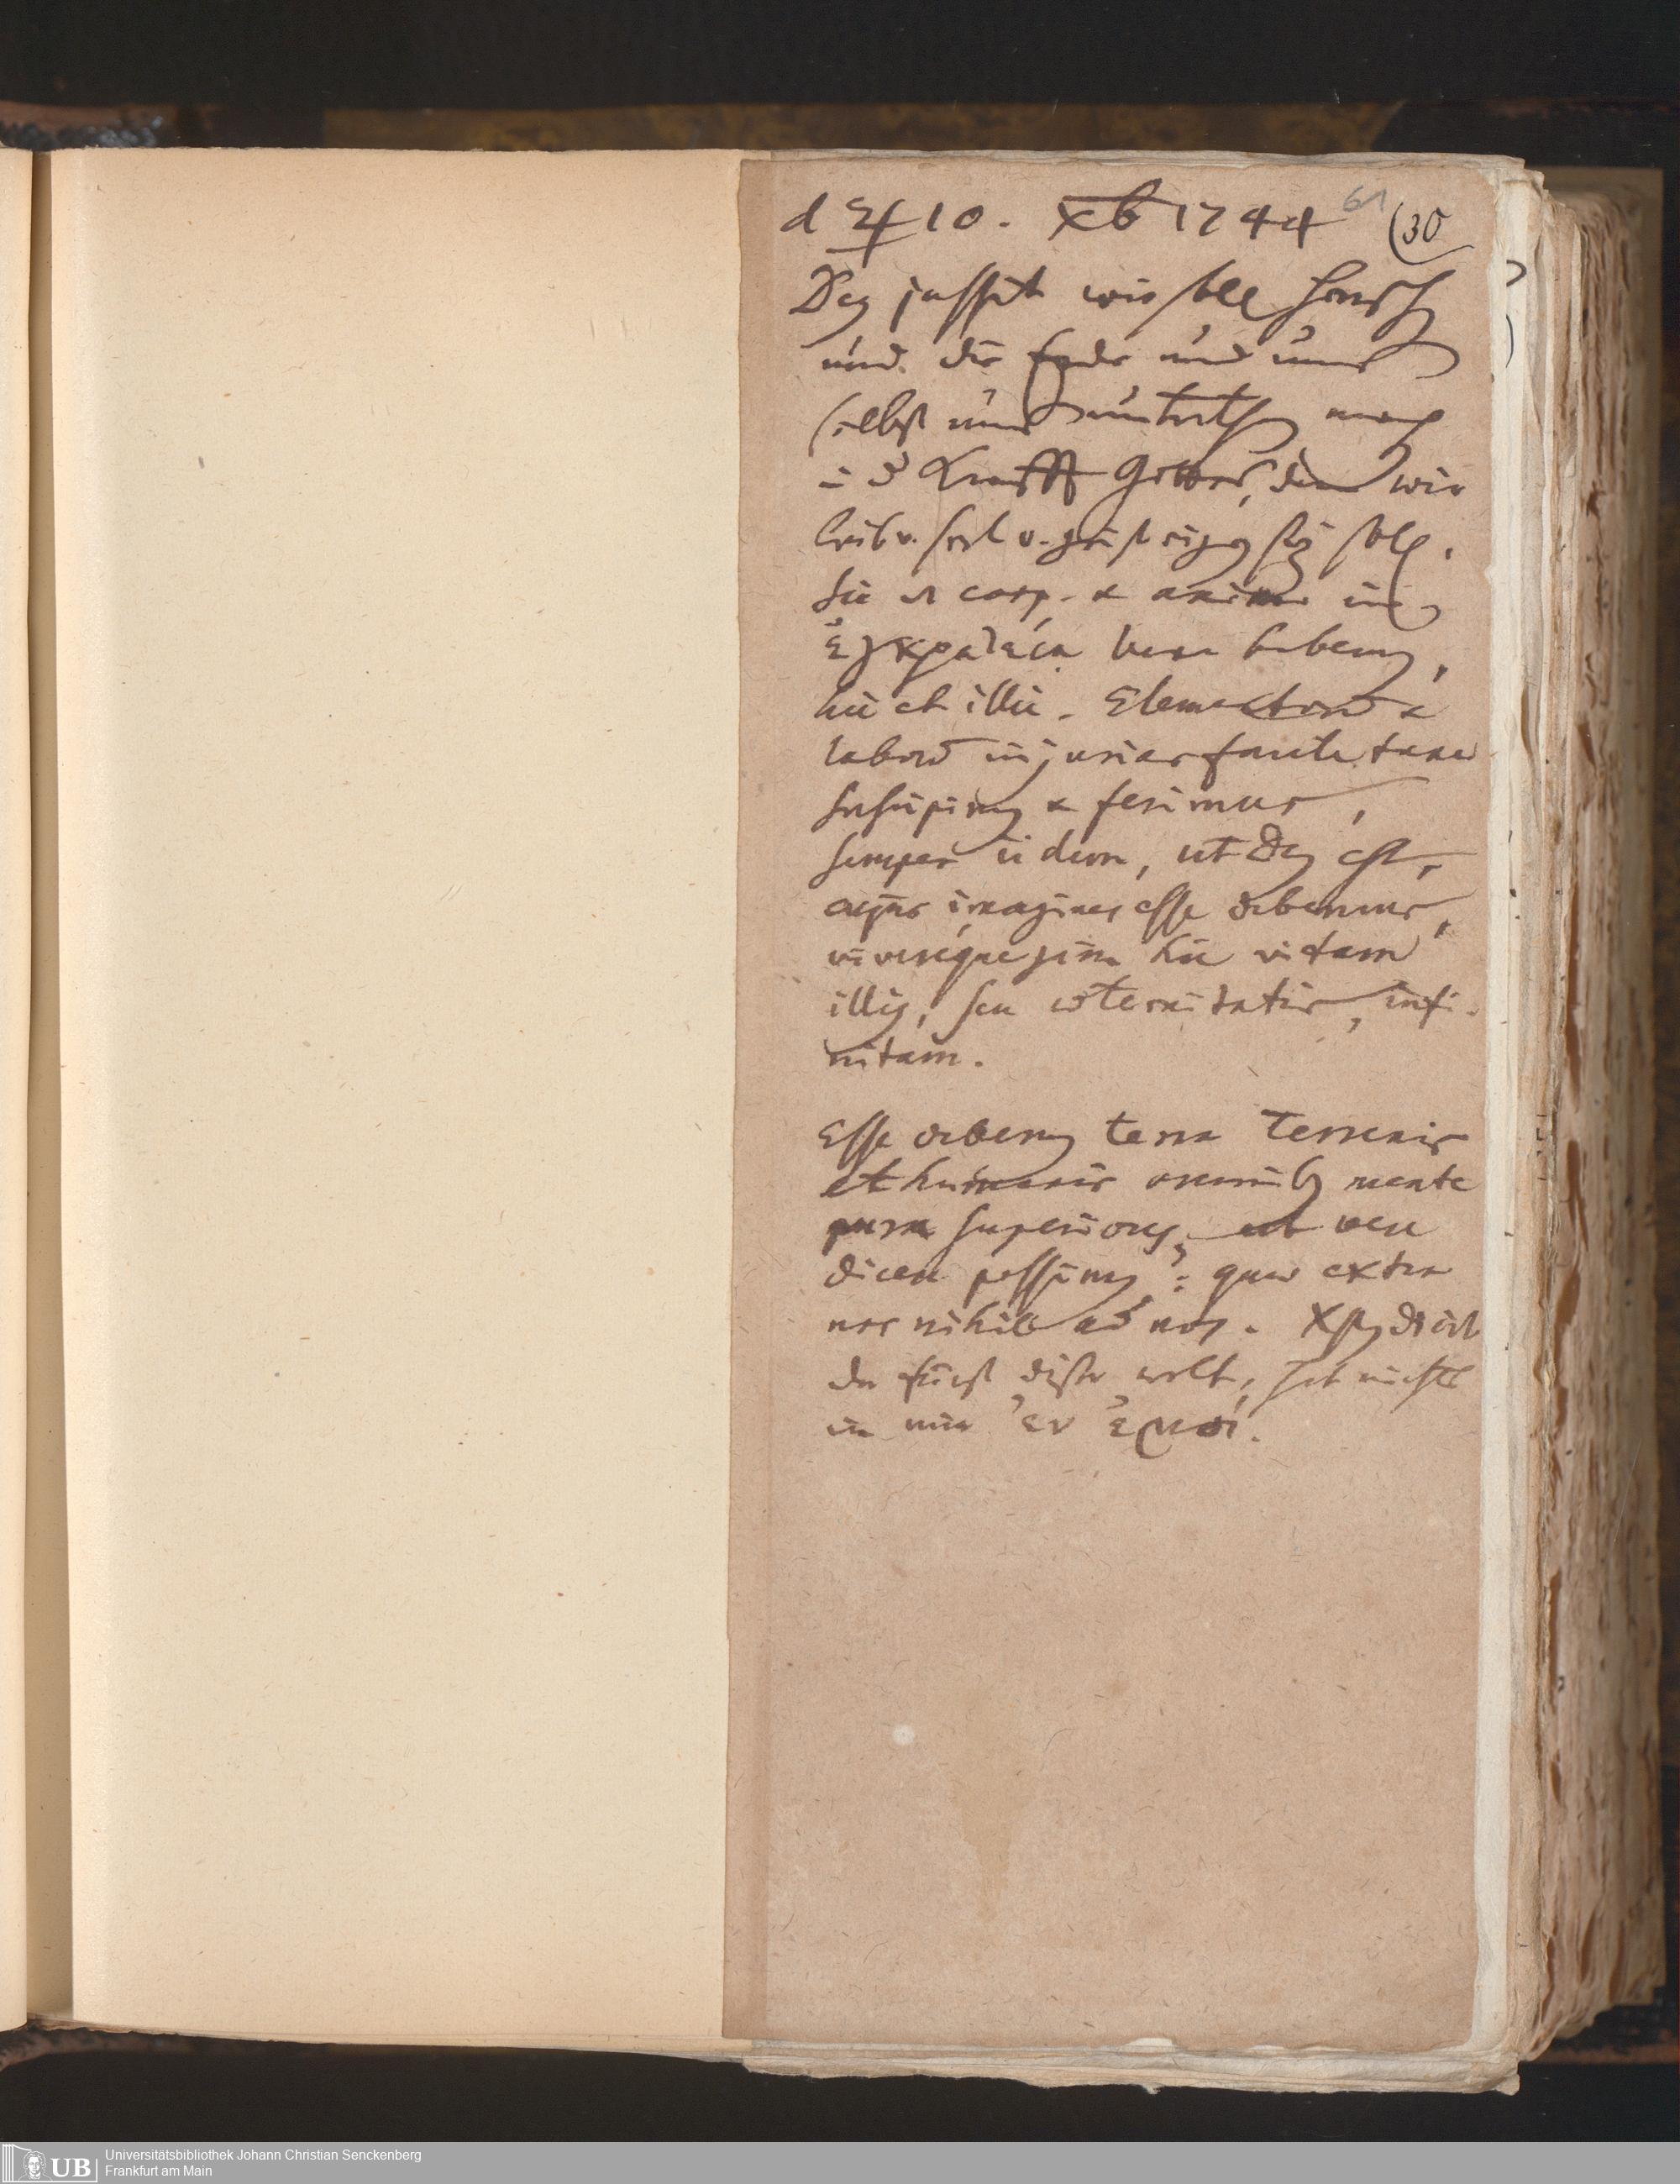 d ♃ 10. Xb 1744 61 (30
Deus jussit wir solln herrschen
und die Erde und uns
selbst uns unterthan machen
in d. Krafft Gottes, dem wir
leib v. seel v. geist eigen seyn solln.
sic et corp. & anima in
ἐγκρατεία habemus,
hic et illic. Elementorum &
laborum injurias facile tunc
suscipimus & ferimus,
semper iidem, ut Deus est,
cujus imagines esse debemus,
vivereque jam hic vitam
illius, seu aeternitatis, infi-
nitam.
Esse debemus terra terrenis
et humanis omnibus mente
pura superiores, ut vere
dicere possimus: quae extra
nos nihil ad nos. Xstus dicit
der fürst diser welt, hat nichts
in mir ἐν ἐμοί.
UB Universitätsbibliothek Johann Christian Senckenberg
Frankfurt am Main